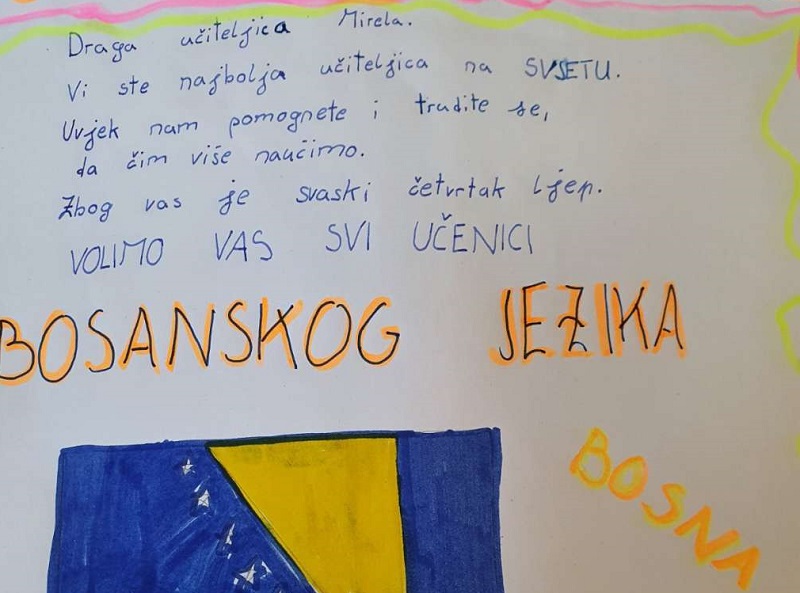 Draga učiteljica Mirela.
Vi ste najbolja učiteljica na SVJETU.
Uvjek nam pomognete i trudite se,
da čim više naučimo.
Zbog vas je svaski četvrtak ljep.
VOLIMO VAS SVI UČENICI
BOSANSKOG JEZIKA
BOSNA